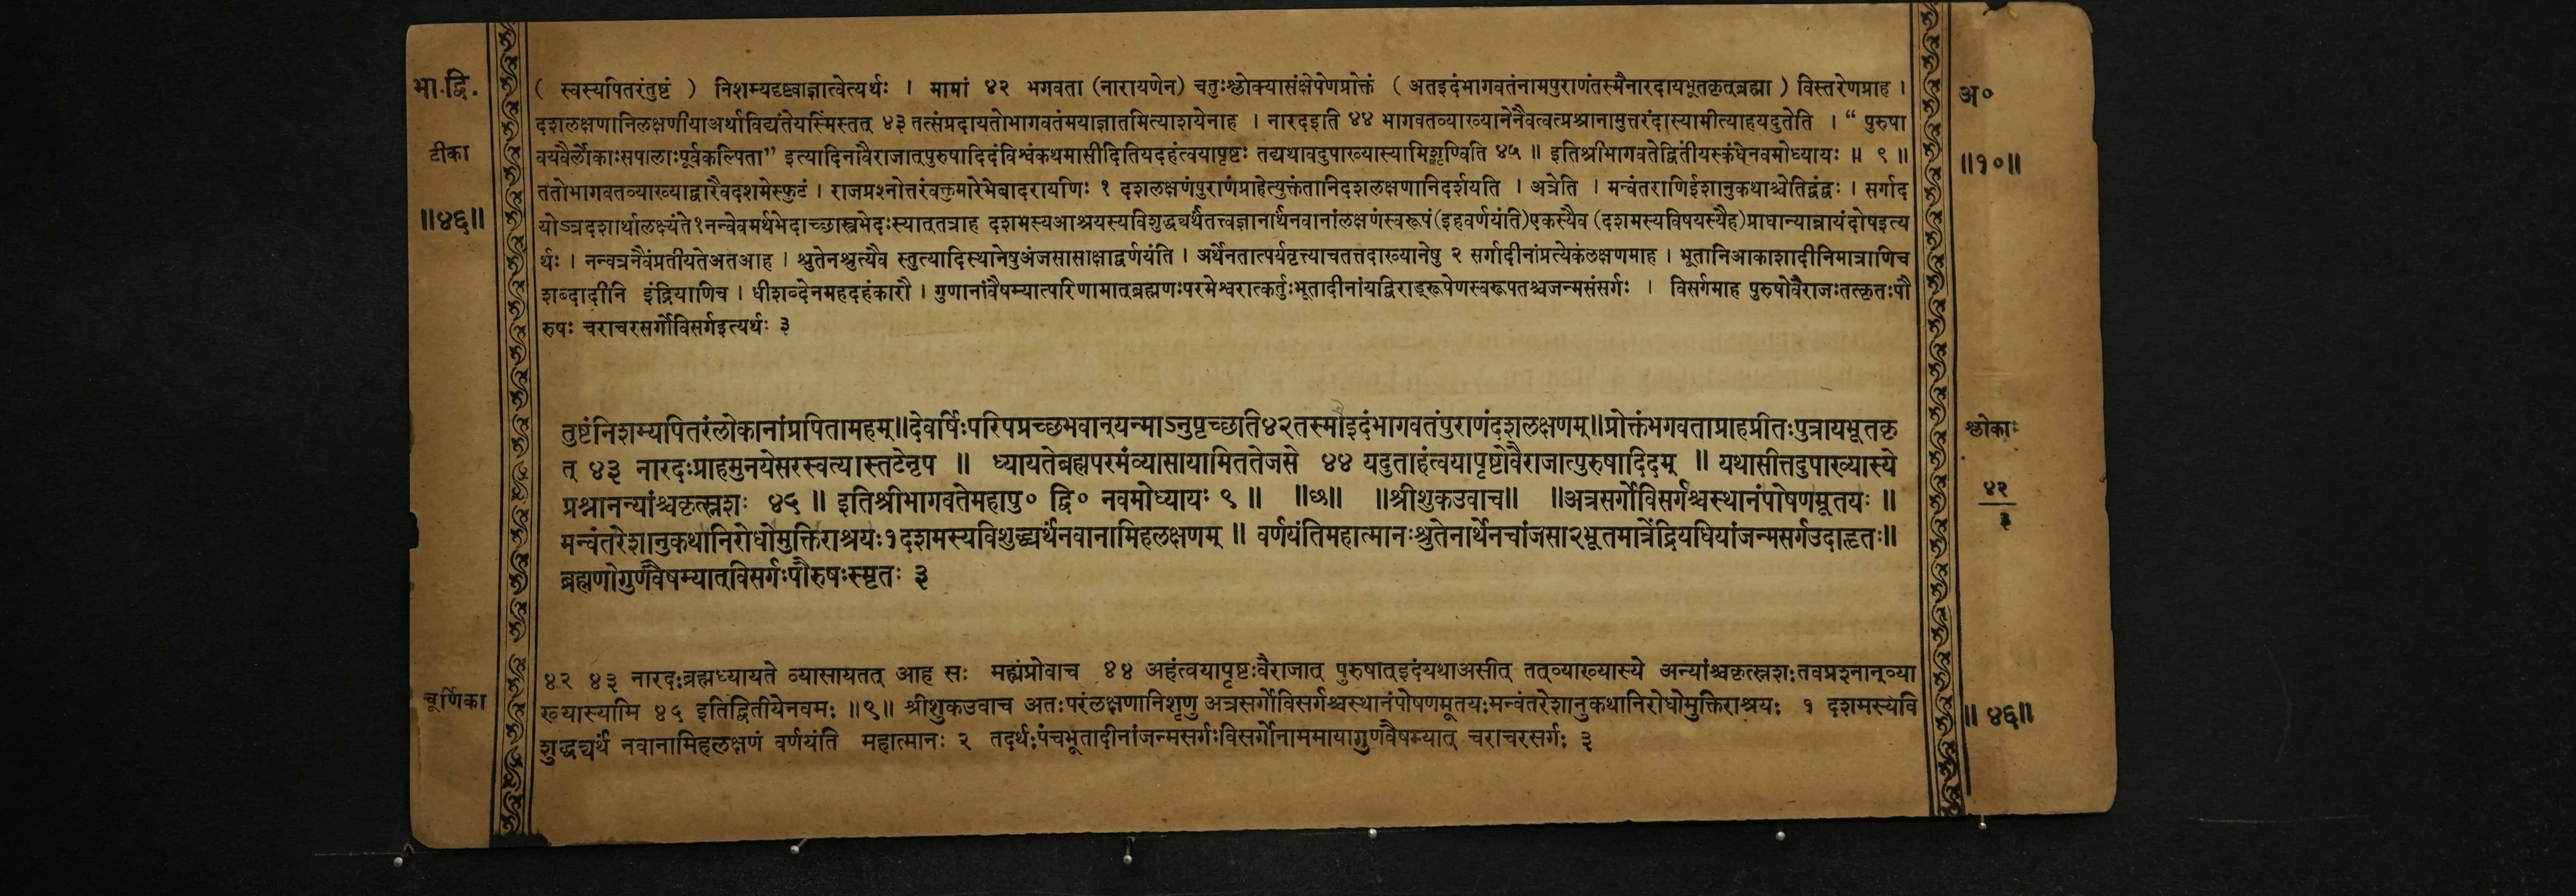 भा.द्वि.
टीका
॥४६॥
( स्वस्यपितरंतुष्टं ) निशम्यदृष्ट्वाज्ञात्वेत्यर्थः । मामां ४२ भगवता (नारायणेन) चतुःश्लोक्यासंक्षेपेणप्रोक्तं ( अतइदंभागवतंनामपुराणंतस्मैनारदायभूतकृत्‌ब्रह्मा ) विस्तरेणप्राह ।
दशलक्षणानिलक्षणीयाअर्थाविद्यंतेयस्मिंस्तत् ४३ तत्संप्रदायतोभागवतंमयाज्ञातमित्याशयेनाह । नारदइति ४४ भागवतव्याख्यानेनैवत्वत्प्रश्नानामुत्तरंदास्यामीत्याहयदुतेति । “ पुरुषा
वयवैर्लोकाःसपालाःपूर्वकल्पिता” इत्यादिनावैराजात्‌पुरुषादिदंविश्वंकथमासीदितियदहंत्वयापृष्टः तद्यथावदुपाख्यास्यामिशृण्विति ४५ ॥ इतिश्रीभागवतेद्वितीयस्कंधेनवमोध्यायः ॥ ९ ॥
ततोभागवतव्याख्याद्वारैवदशमेस्फुटं । राजप्रश्नोत्तरंवक्तुमारेभेबादरायणिः १ दशलक्षणंपुराणंप्राहेत्युक्तंतानिदशलक्षणानिदर्शयति । अत्रेति । मन्वंतराणिईशानुकथाश्चेतिद्वंद्वः । सर्गाद
योऽत्रदशार्थालक्ष्यंते१नन्वेवमर्थभेदाच्छास्त्रभेदःस्यात्‌तत्राह दशमस्यआश्रयस्यविशुद्ध्यर्थंतत्त्वज्ञानार्थंनवानांलक्षणंस्वरूपं(इहवर्णयंति)एकस्यैव (दशमस्यविषयस्यैह)प्राधान्यान्नायंदोषइत्य
र्थः । नन्वत्रनैवंप्रतीयतेअतआह । श्रुतेनश्रुत्यैव स्तुत्यादिस्थानेषुअंजसासाक्षाद्वर्णयंति । अर्थेनतात्पर्यवृत्त्याचतत्तदाख्यानेषु २ सर्गादीनांप्रत्येकंलक्षणमाह । भूतानिआकाशादीनिमात्राणिच
शब्दादीनि इंद्रियाणिच । धीशब्देनमहदहंकारौ । गुणानांवैषम्यात्परिणामात्‌ब्रह्मणःपरमेश्वरात्कर्तुःभूतादीनांयद्विराड्रूपेणस्वरूपतश्चजन्मसंसर्गः । विसर्गमाह पुरुषोवैराजःतत्कृतःपौ
रुषः चराचरसर्गोविसर्गइत्यर्थः ३
तुष्टंनिशम्यपितरंलोकानांप्रपितामहम्॥देवर्षिःपरिपप्रच्छभवान्‌यन्माऽनुपृच्छति४२तस्माइदंभागवतंपुराणंदशलक्षणम्॥प्रोक्तंभगवताप्राहप्रीतःपुत्रायभूतकृ
त् ४३ नारदःप्राहमुनयेसरस्वत्यास्तटेनृप ॥ ध्यायतेब्रह्मपरमंव्यासायामिततेजसे ४४ यदुताहंत्वयापृष्टोवैराजात्पुरुषादिदम् ॥ यथासीत्तदुपाख्यास्ये
प्रश्नानन्यांश्चकृत्स्नशः ४५ ॥ इतिश्रीभागवतेमहापु० द्वि० नवमोध्यायः ९ ॥ ॥छ॥ ॥श्रीशुकउवाच॥ ॥अत्रसर्गोविसर्गश्चस्थानंपोषणमूतयः ॥
मन्वंतरेशानुकथानिरोधोमुक्तिराश्रयः१दशमस्यविशुद्ध्यर्थंनवानामिहलक्षणम् ॥ वर्णयंतिमहात्मानःश्रुतेनार्थेनचांजसा२भूतमात्रेंद्रियधियांजन्मसर्गउदाहृतः॥
ब्रह्मणोगुणवैषम्यात्‌विसर्गःपौरुषःस्मृतः ३
चूर्णिका
४२ ४३ नारदःब्रह्मध्यायते व्यासायतत् आह सः मह्यंप्रोवाच ४४ अहंत्वयापृष्टःवैराजात् पुरुषात्‌इदंयथाअसीत् तत्‌व्याख्यास्ये अन्यांश्चकृत्स्नशःतवप्रश्नान्‌व्या
ख्यास्यामि ४५ इतिद्वितीयेनवमः ॥९॥ श्रीशुकउवाच अतःपरंलक्षणानिशृणु अत्रसर्गोविसर्गश्चस्थानंपोषणमूतयःमन्वंतरेशानुकथानिरोधोमुक्तिराश्रयः १ दशमस्यवि
शुद्ध्यर्थं नवानामिहलक्षणं वर्णयंति महात्मानः २ तदर्थःपंचभूतादीनांजन्मसर्गःविसर्गोनाममायागुणवैषम्यात् चराचरसर्गः ३
अ०
॥१०॥
श्लोकाः
४२
३
॥ ४६॥